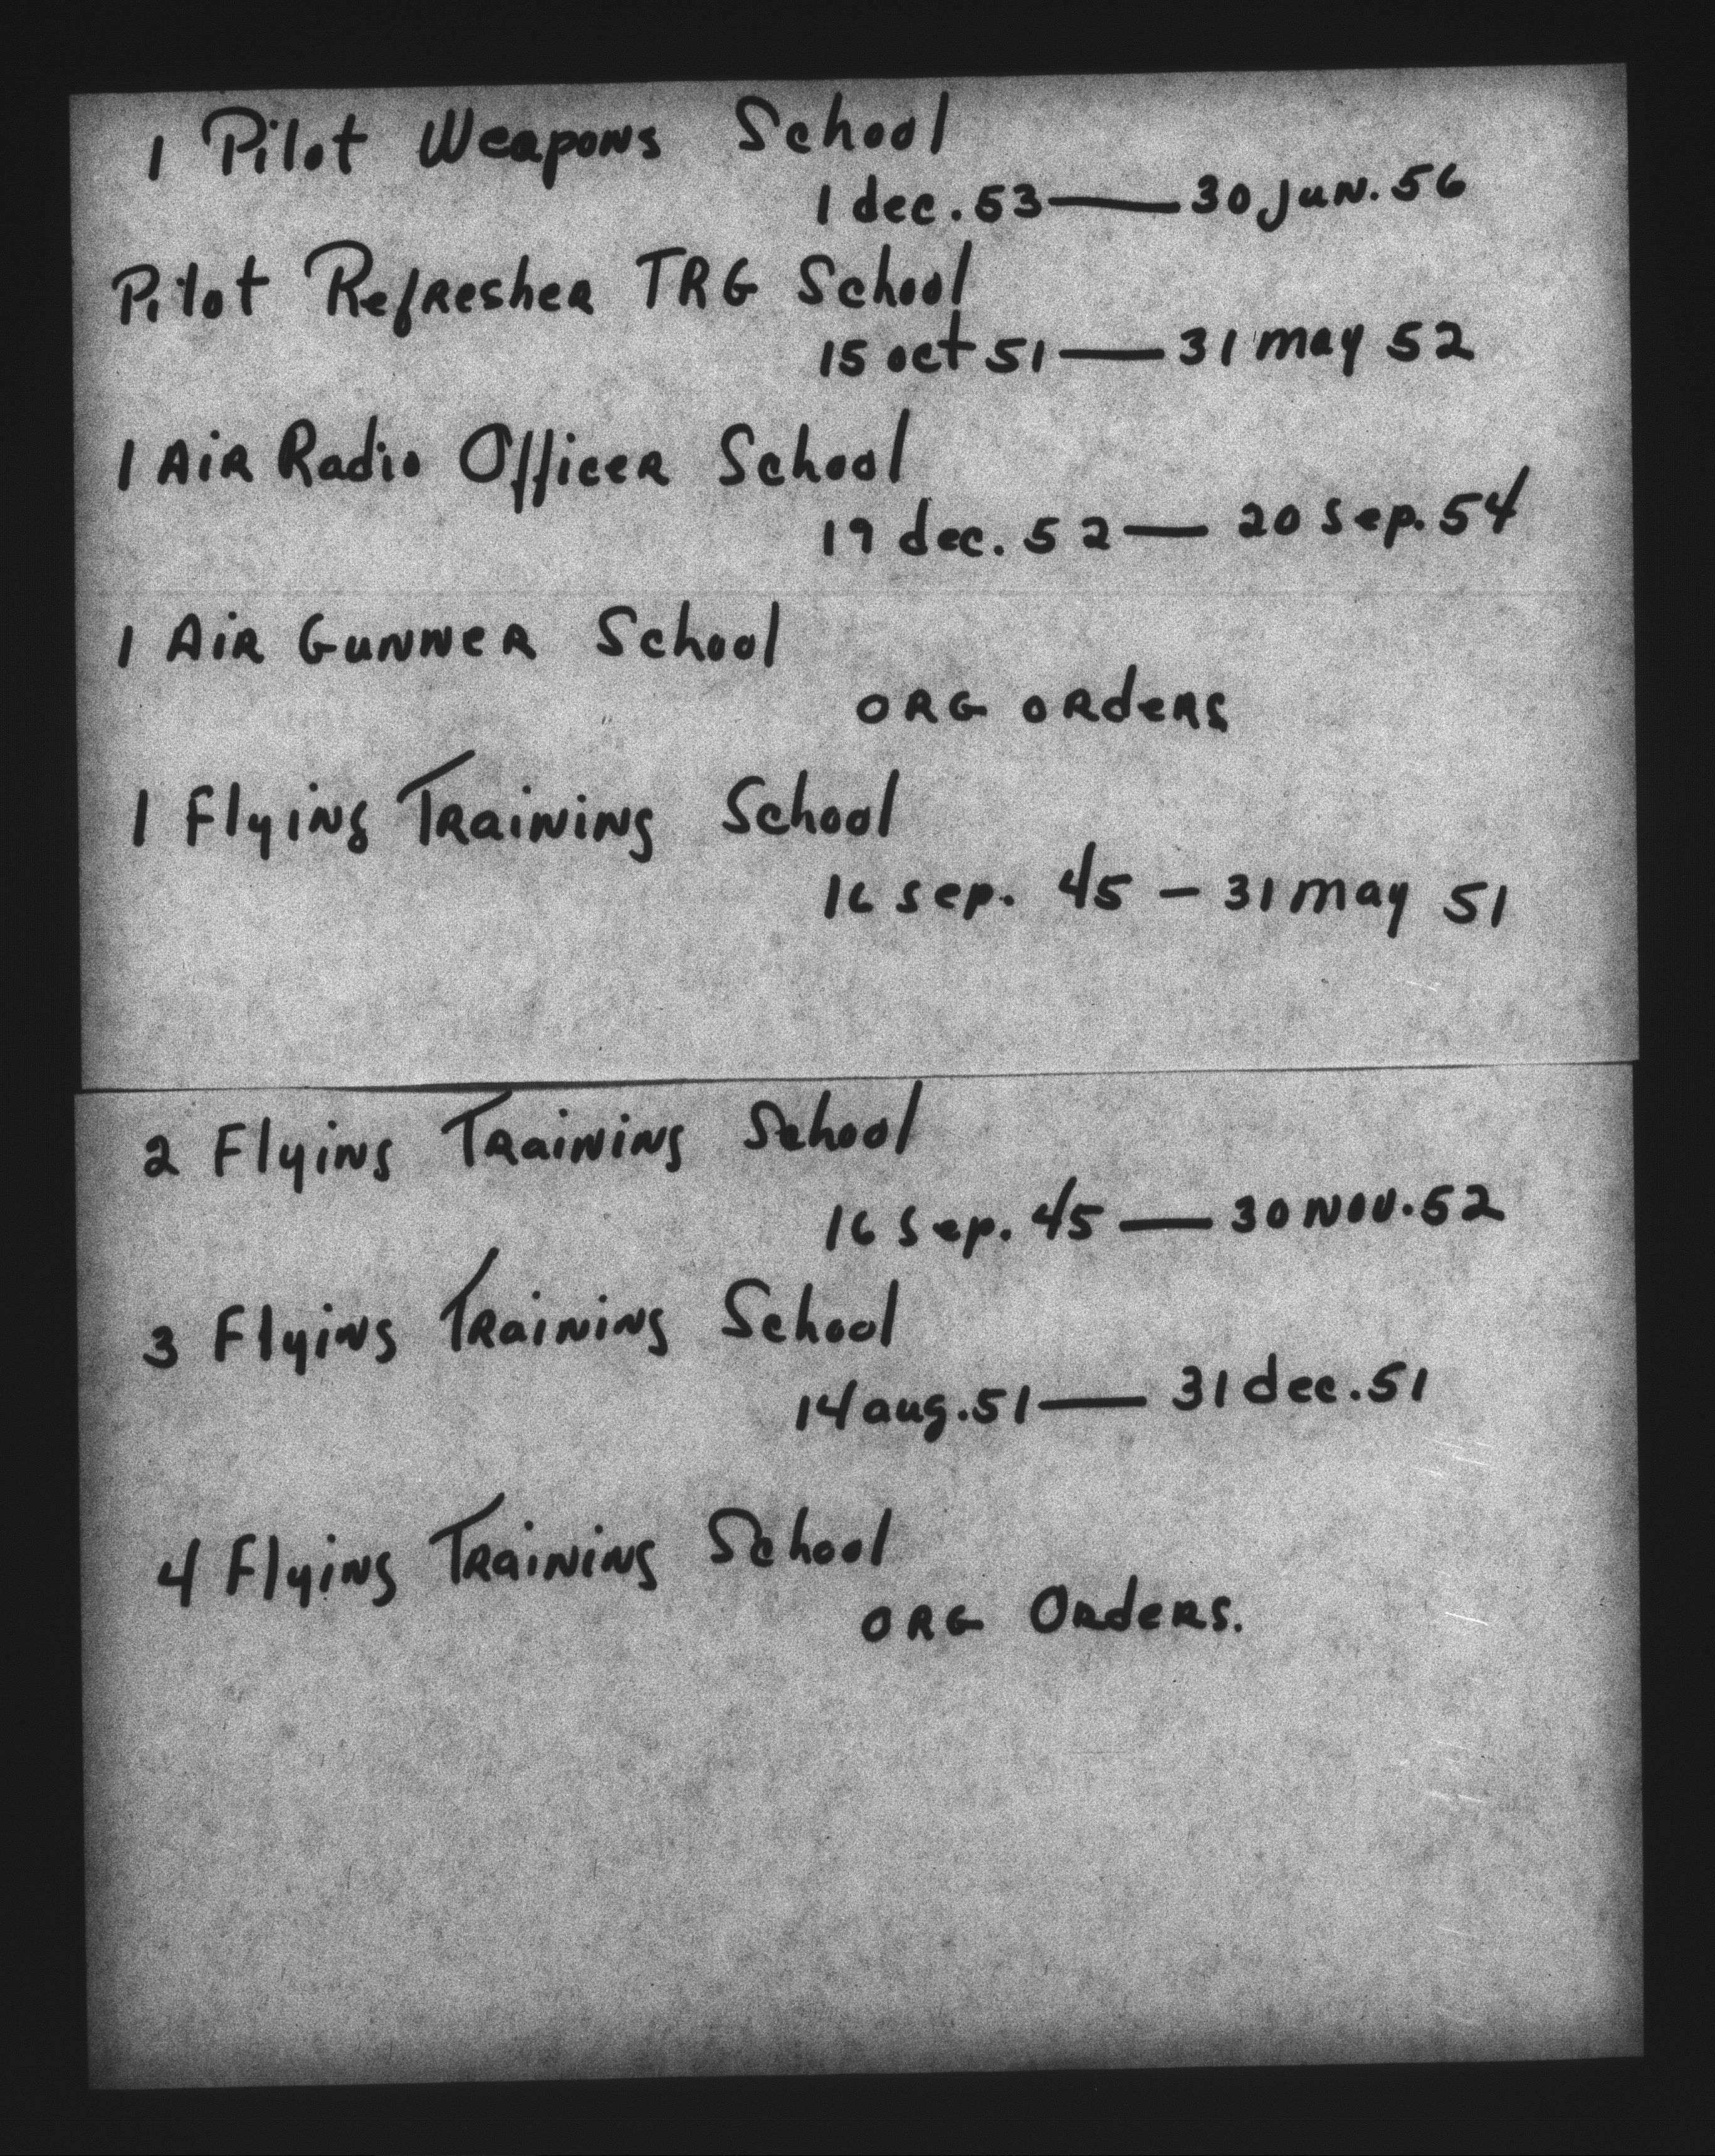 1 Pilot Weapons School
1 dec. 53 — 30 Jun. 56
Pilot Refresher TRG School
15 oct 51 — 31 may 52
1 Air Radio Officer School
19 dec. 52 — 20 Sep. 54
1 Air Gunner School
ORG orders
1 Flying Training School
16 sep. 45 — 31 may 51
2 Flying Training School
16 Sep. 45 — 30 Nov. 52
3 Flying Training School
14 aug. 51 — 31 dec. 51
4 Flying Training School
ORG Orders.